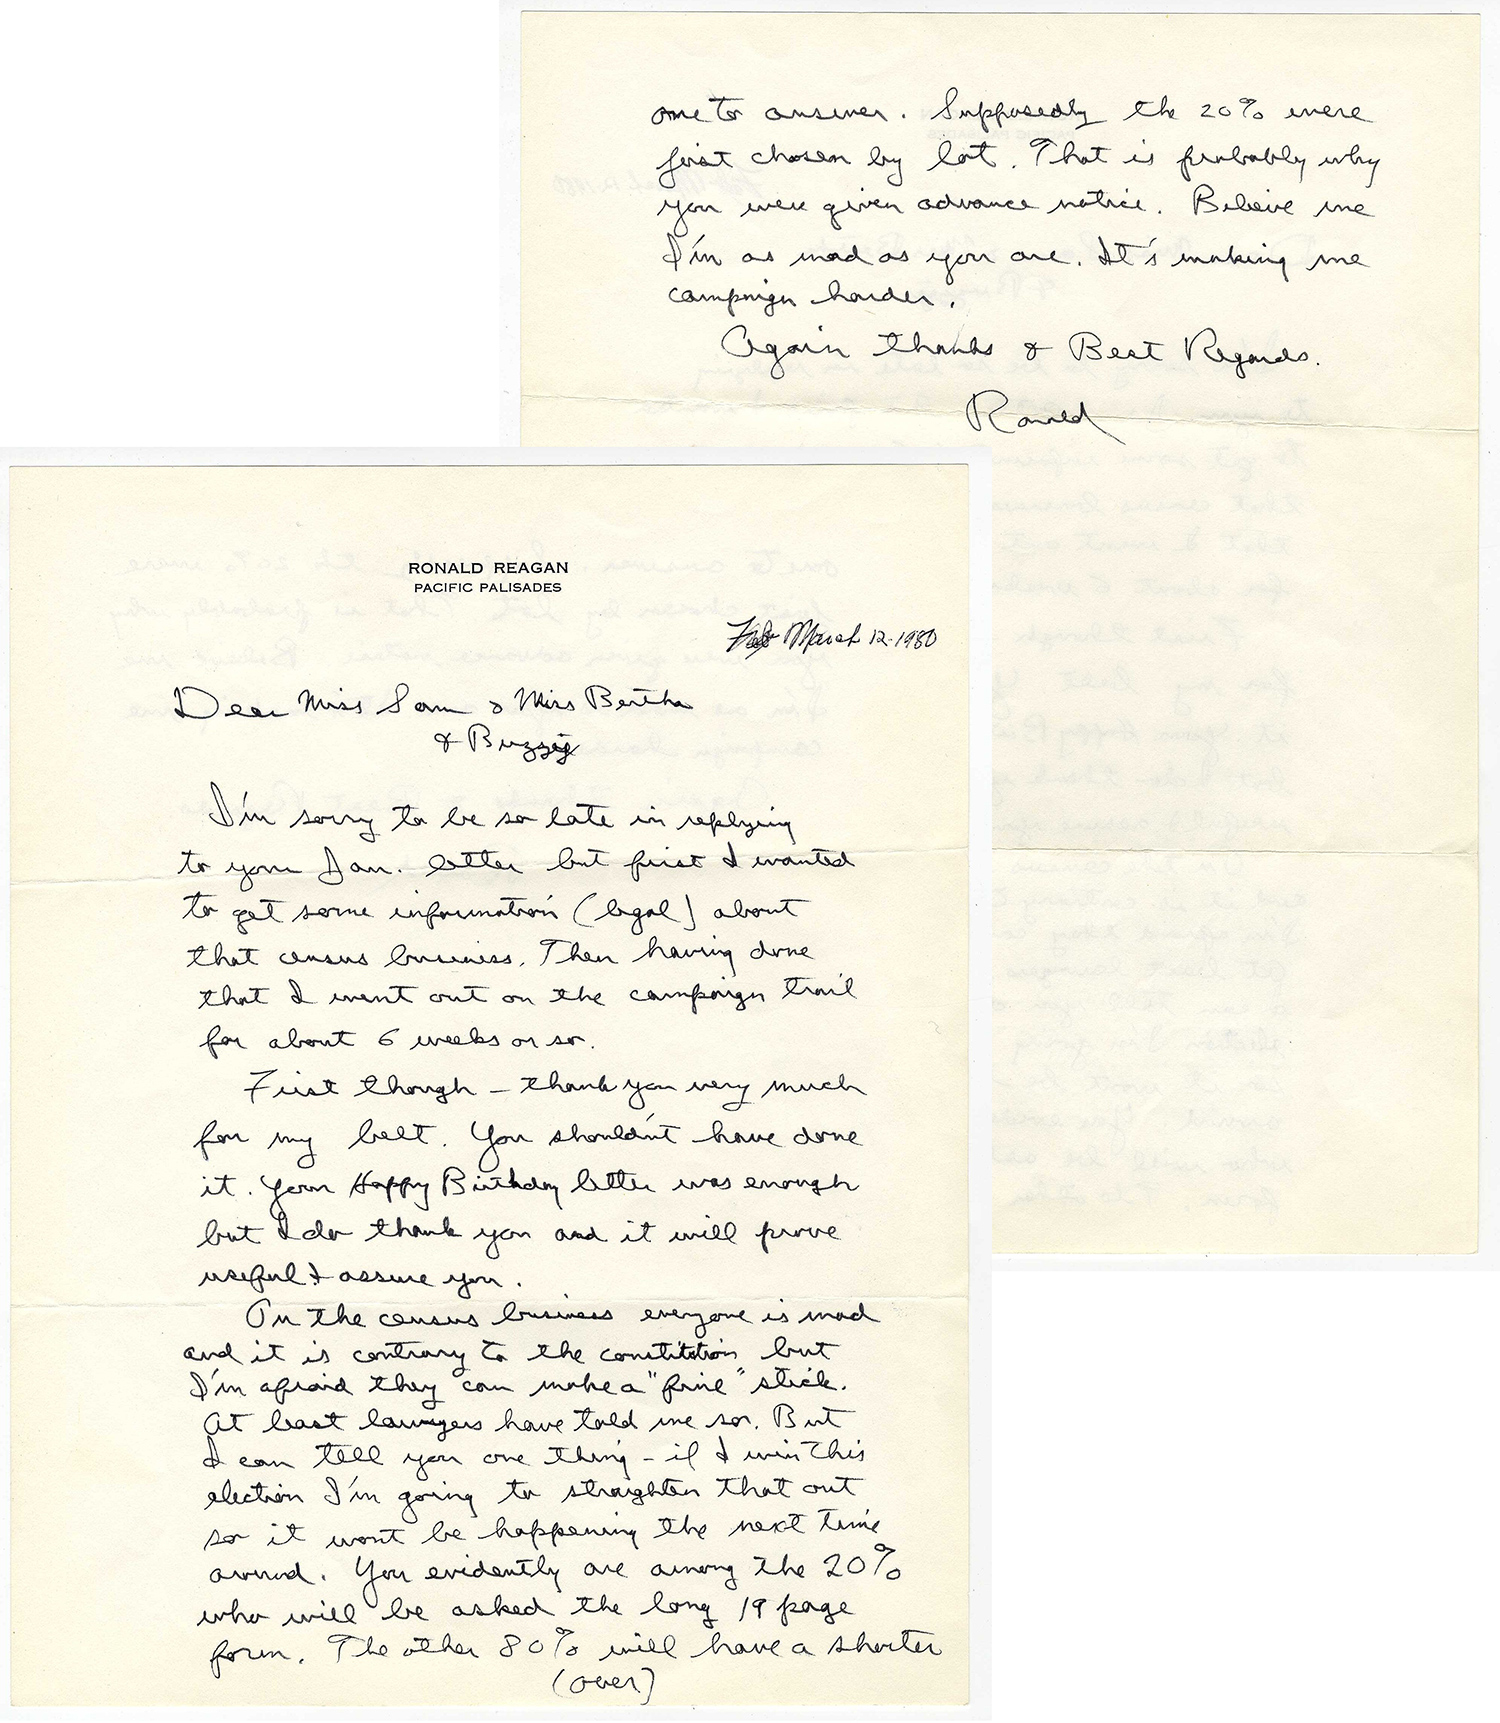 RONALD REAGAN
PACIFIC PALISADES
Feb March 12-1980
Dear Miss Sam & Miss Bertha
& Buzzy
I'm sorry to be so late in replying
to your Jan. letter but first I wanted
to get some information (legal) about
that census business. Then having done
that I went out on the campaign trail
for about 6 weeks or so.
First though – thank you very much
for my belt. You shouldn't have done
it. Your Happy Birthday letter was enough
but I do thank you and it will prove
useful I assure you.
On the census business everyone is mad
and it is contrary to the constitution but
I'm afraid they can make a "fine" stick.
At least lawyers have told me so. But
I can tell you one thing – if I win this
election I'm going to straighten that out
so it wont be happening the next time
around. You evidently are among the 20%
who will be asked the long 19 page
form. The other 80% will have a shorter
(over)
one to answer. Supposedly the 20% were
first chosen by lot. That is probably why
you were given advance notice. Believe me
I'm as mad as you are. It's making me
campaign harder.
Again thanks & Best Regards.
Ronald